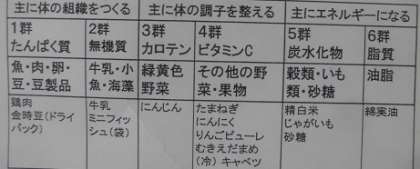 主に体の組織をつくる
主に体の調子を整える
主にエネルギーになる
1群
たんぱく質
2群
無機質
3群
カロテン
4群
ビタミンC
5群
炭水化物
6群
脂質
魚・肉・卵・
豆・豆製品
牛乳・小
魚・海藻
緑黄色
野菜
その他の野
菜・果物
穀類・いも
類・砂糖
油脂
鶏肉
金時豆(ドライ
パック)
牛乳
ミニフィッ
シュ(袋)
にんじん
たまねぎ
にんにく
りんごピューレ
むきえだまめ
(冷) キャベツ
精白米
じゃがいも
砂糖
綿実油